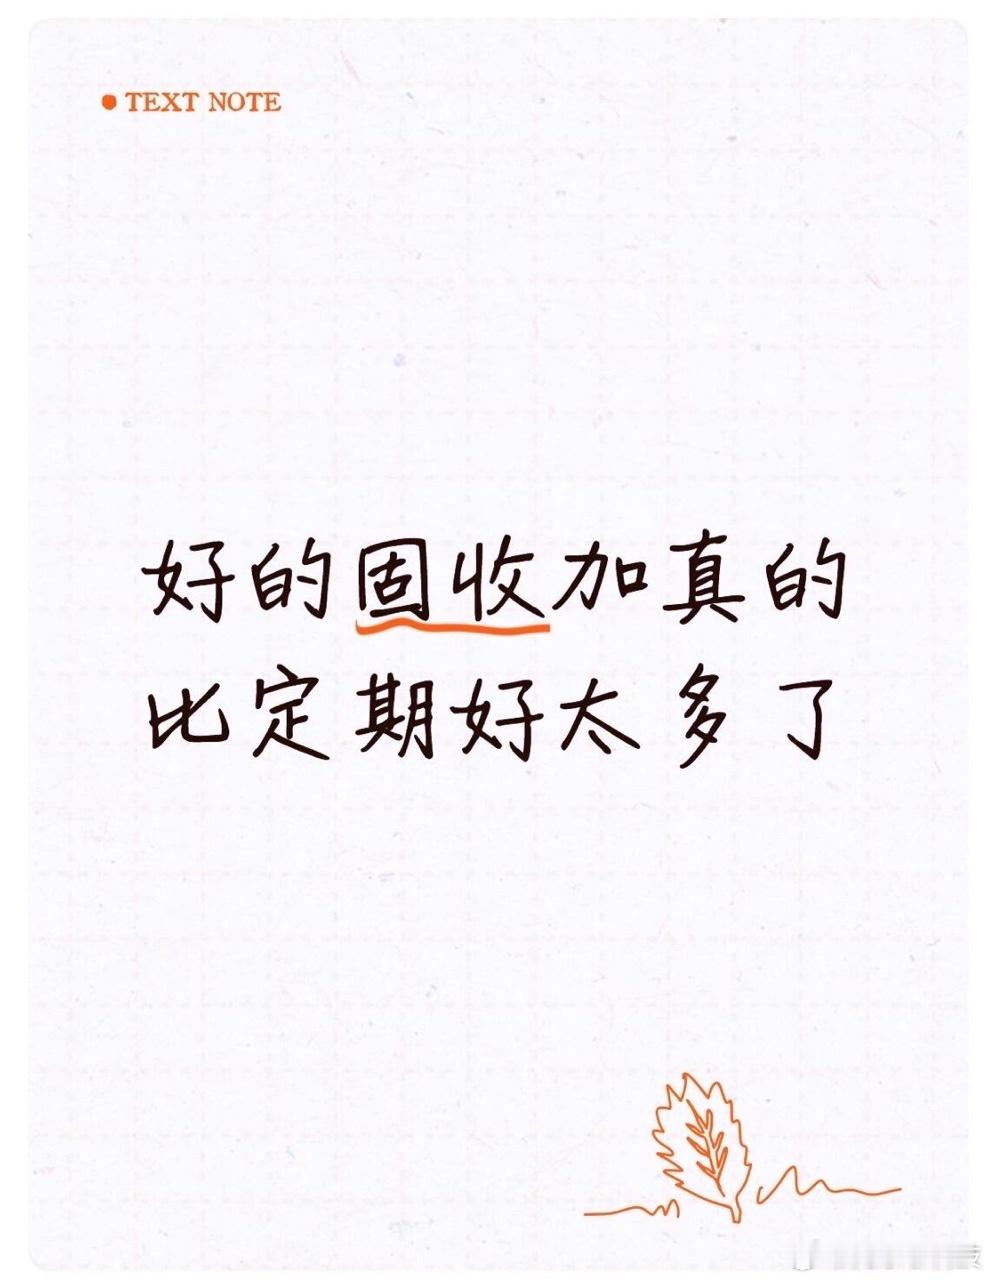 TEXT NOTE
好的固收加真的
比定期好太多了